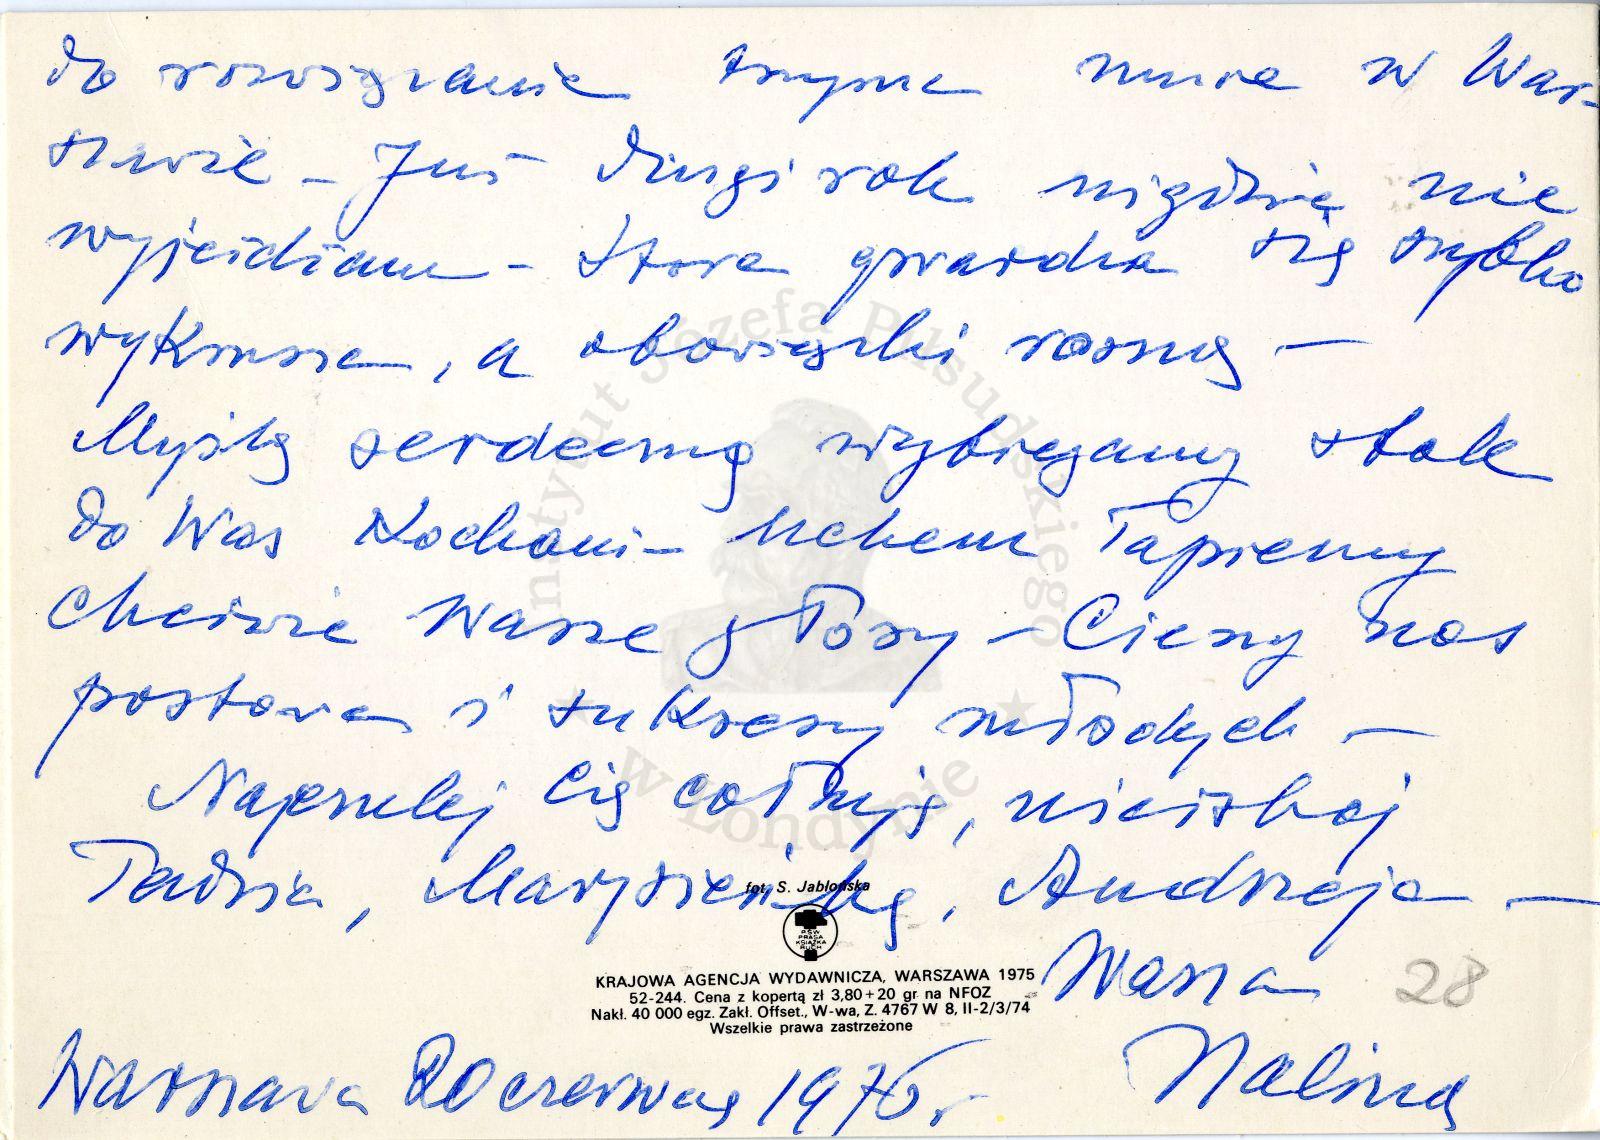 do rozwiązania trzyma mnie w War-
szawie - Już drugi rok nigdzie nie
wyjeżdżam - Stara gwardia się szybko
wykrusza, a obowiązki rosną -
Myślą serdeczną wybiegamy stale
do Was Kochani - Uchem łapiemy
chciwie Wasze głosy - Cieszy nas
postawa i sukcesy młodych -
Najczulej Cię całuję, uściskaj
Tadzia, Marysieńkę, Andrzeja -
Wasza
Halina
Warszawa 20 czerwca 1976 r
28
fot. S. Jabłońska
PSW
PRASA
KSIĄŻKA
RUCH
KRAJOWA AGENCJA WYDAWNICZA, WARSZAWA 1975
52-244. Cena z kopertą zł 3,80+20 gr na NFOZ
Nakł. 40 000 egz. Zakł. Offset., W-wa, Z. 4767 W 8, II-2/3/74
Wszelkie prawa zastrzeżone
Instytut Józefa Piłsudskiego
w Londynie